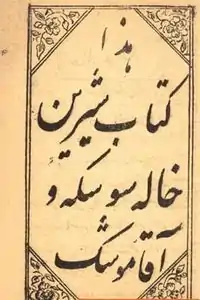 هذا
کتاب شیرین
خاله سوسکه و
آقا موشک